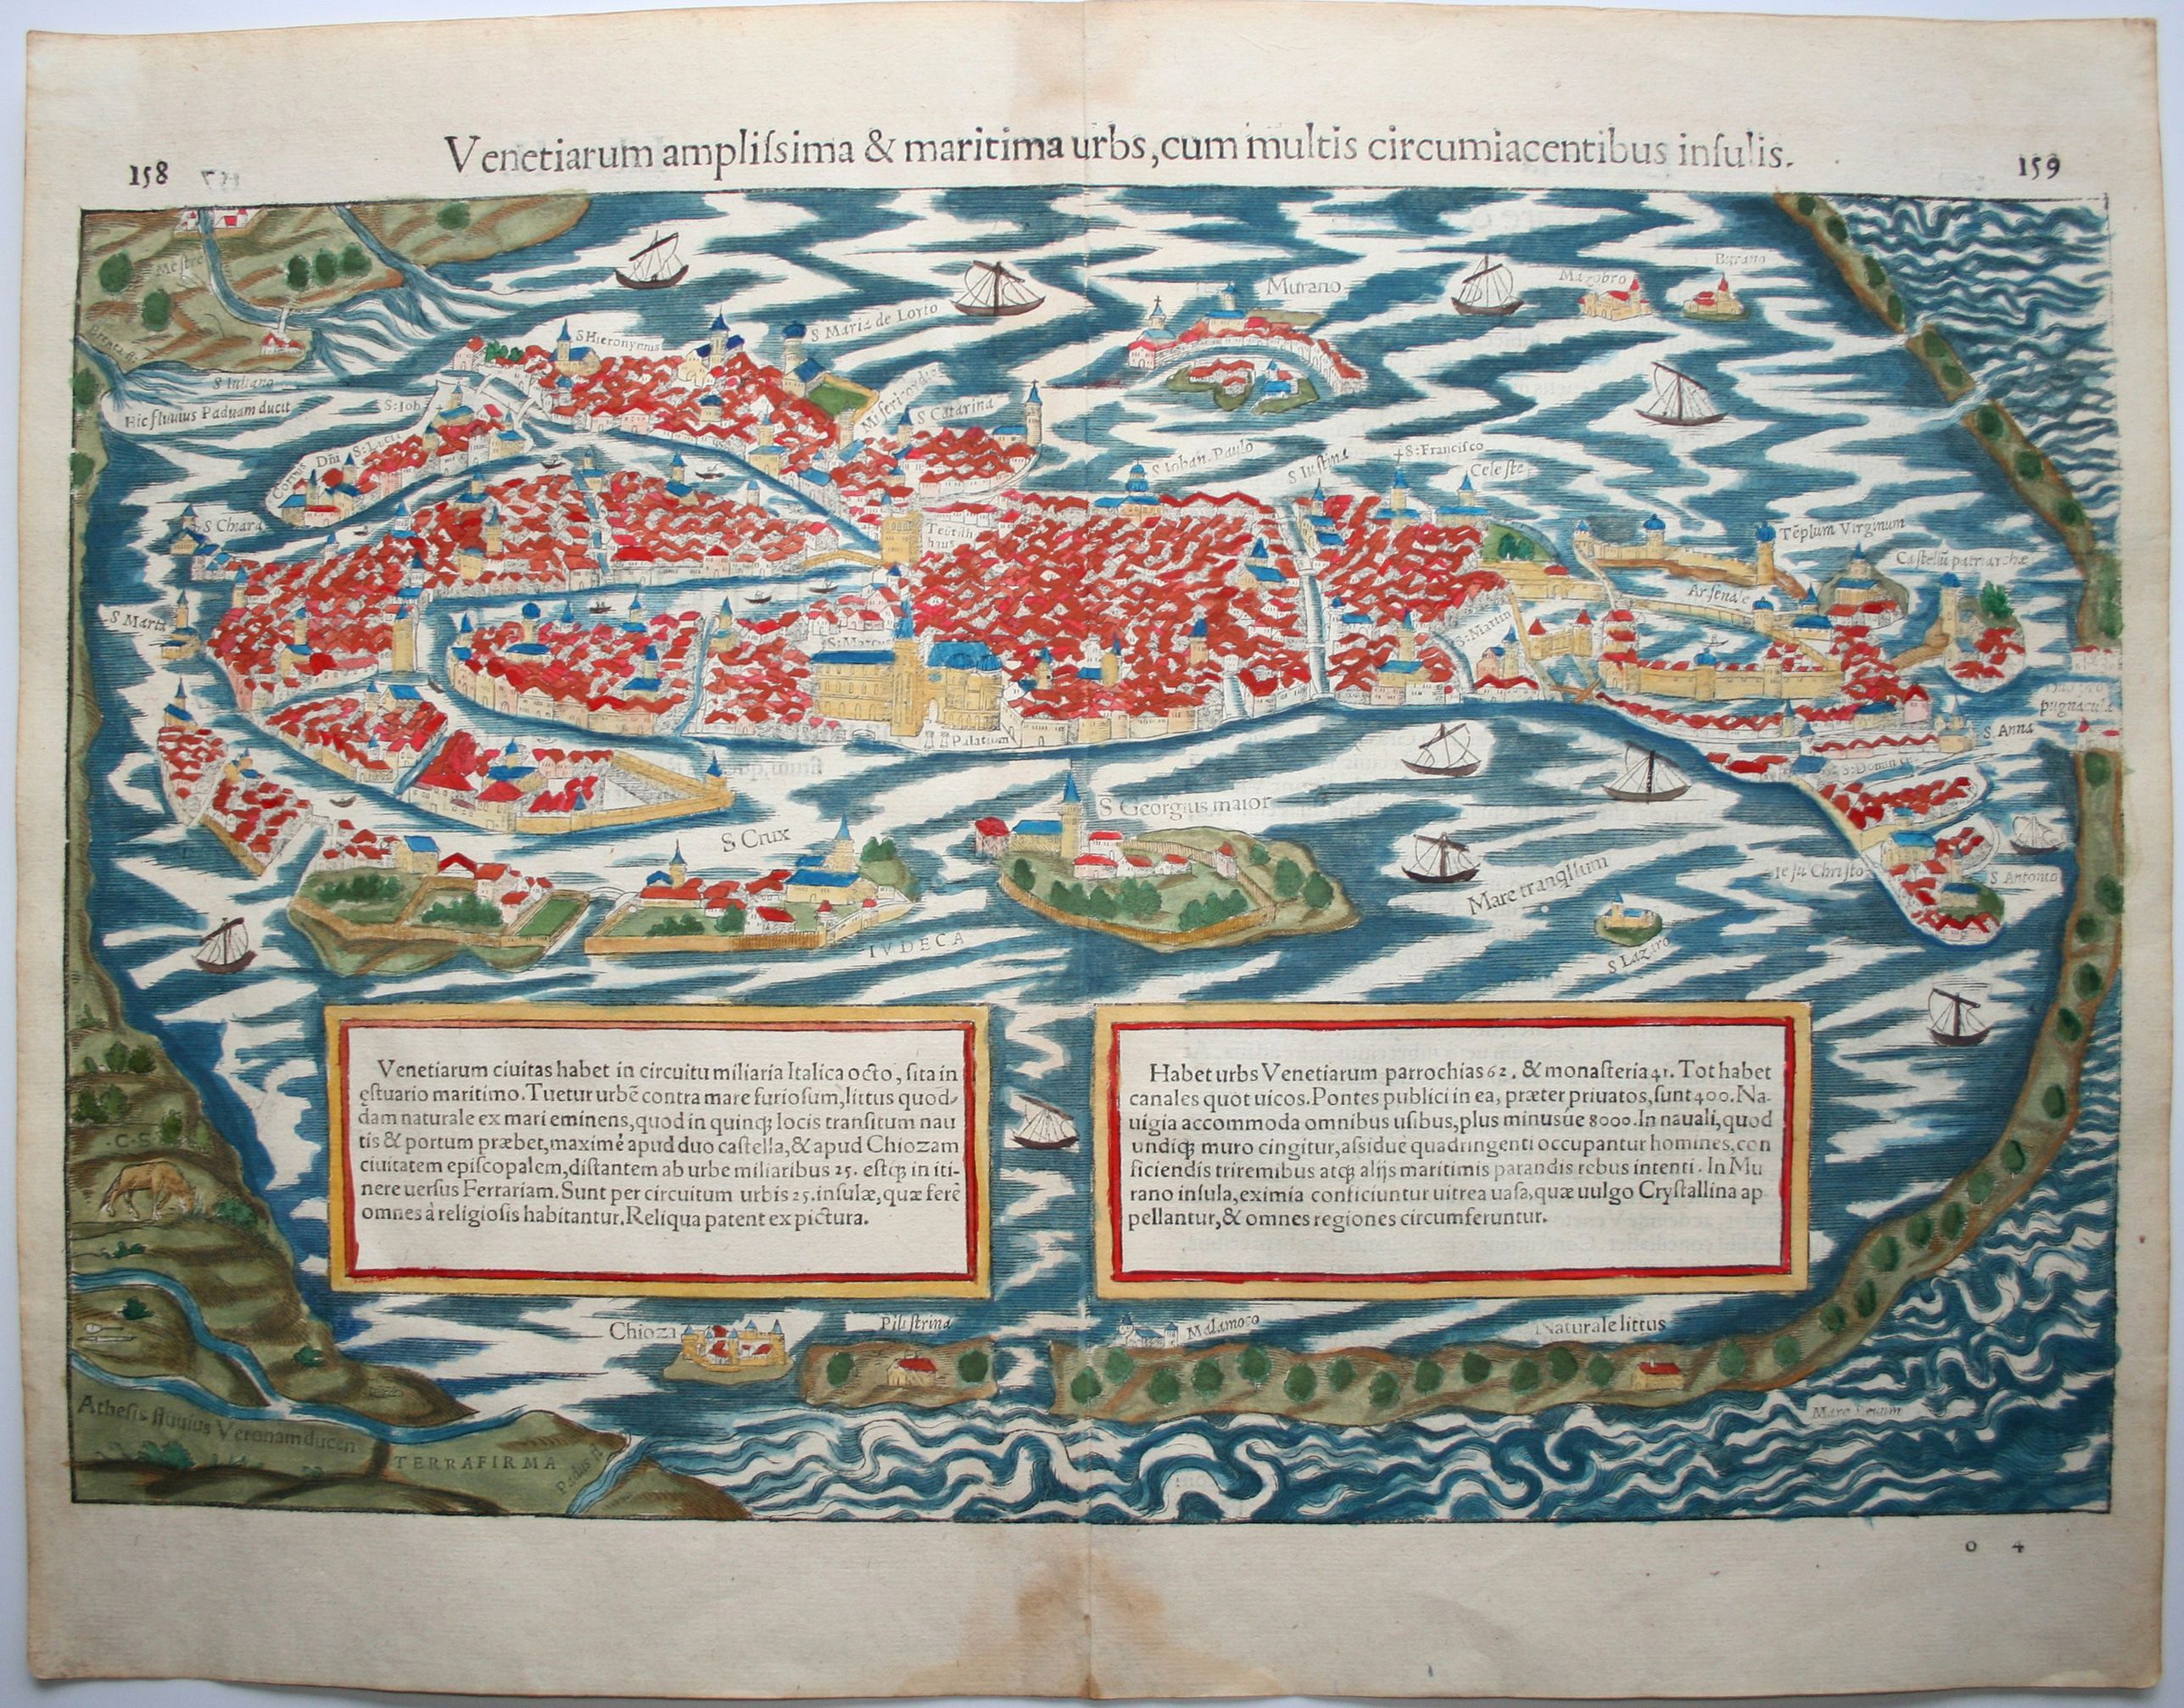 Venetiarum ampliſsima & maritima urbs, cum multis circumiacentibus inſulis.
158
159
Meſtre
S Iuliano
Hic fluuius Paduam ducit
S Hieronymus
S Maria de Lorto
Miſericordia
S Catarina
Murano
Mazobro
Burano
S: Iob
Corpus Dñi
S: Lucia
S Chiara
S Marta
S Iohan. Paulo
S Iuſtina
S: Franciſco
Celeſte
Teutſh
haus
Tẽplum Virginum
Caſtellũ patriarchæ
Arſenale
S: Martin
S: Marcus
Palatium
pugnacula
S. Anna
S: Domin
S Crux
S Georgius maior
Mare tranqllum
Ieſu Chriſto
S Antonio
S Lazaro
IVDECA
Venetiarum ciuitas habet in circuitu miliaria Italica octo, ſita in
ęſtuario maritimo. Tuetur urbẽ contra mare furioſum, littus quod-
dam naturale ex mari eminens, quod in quinqꝫ locis tranſitum nau
tis & portum præbet, maximè apud duo caſtella, & apud Chiozam
ciuitatem epiſcopalem, diſtantem ab urbe miliaribus 25. eſtqꝫ in iti-
nere uerſus Ferrariam. Sunt per circuitum urbis 25. inſulæ, quæ ferè
omnes à religioſis habitantur. Reliqua patent ex pictura.
Habet urbs Venetiarum parrochias 62. & monaſteria 41. Tot habet
canales quot uicos. Pontes publici in ea, præter priuatos, ſunt 400. Na-
uigia accommoda omnibus uſibus, plus minusúe 8000. In nauali, quod
undiqꝫ muro cingitur, aſsiduè quadringenti occupantur homines, con
ficiendis triremibus atqꝫ alijs maritimis parandis rebus intenti. In Mu
rano inſula, eximia conficiuntur uitrea uaſa, quæ uulgo Cryſtallina ap
pellantur, & omnes regiones circumferuntur.
C S
Chioza
Piliſtrina
Malamoco
Naturale littus
Atheſis fluuius Veronam ducen
TERRAFIRMA
Padus fl
Mare
o 4